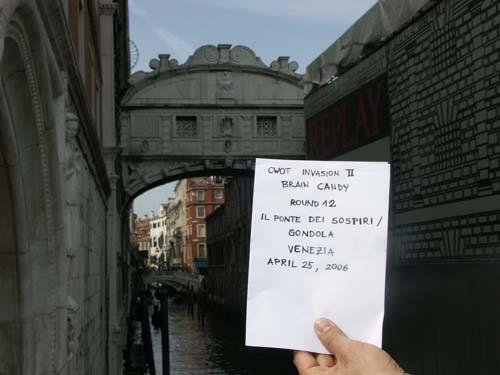 REPLAY
CWOT INVASION II
BRAIN CANDY
ROUND 12
IL PONTE DEI SOSPIRI/
GONDOLA
VENEZIA
APRIL 25, 2006